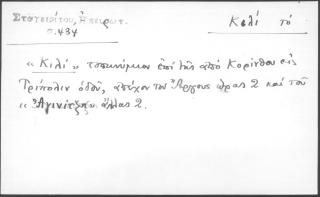 Στογειρίτου, Ἠπειρωτ. Κιλί τό
σ. 434
« Κιλί » τοπωνύμιον ἐπί τῆς ἀπό Κορίνθου εἰς
Τρίπολιν ὁδοῦ, ἀπέχον τοῦ Ἄργους ὥρας 2 καί τοῦ
« Ἀχινίτζη » ἄλλας 2.